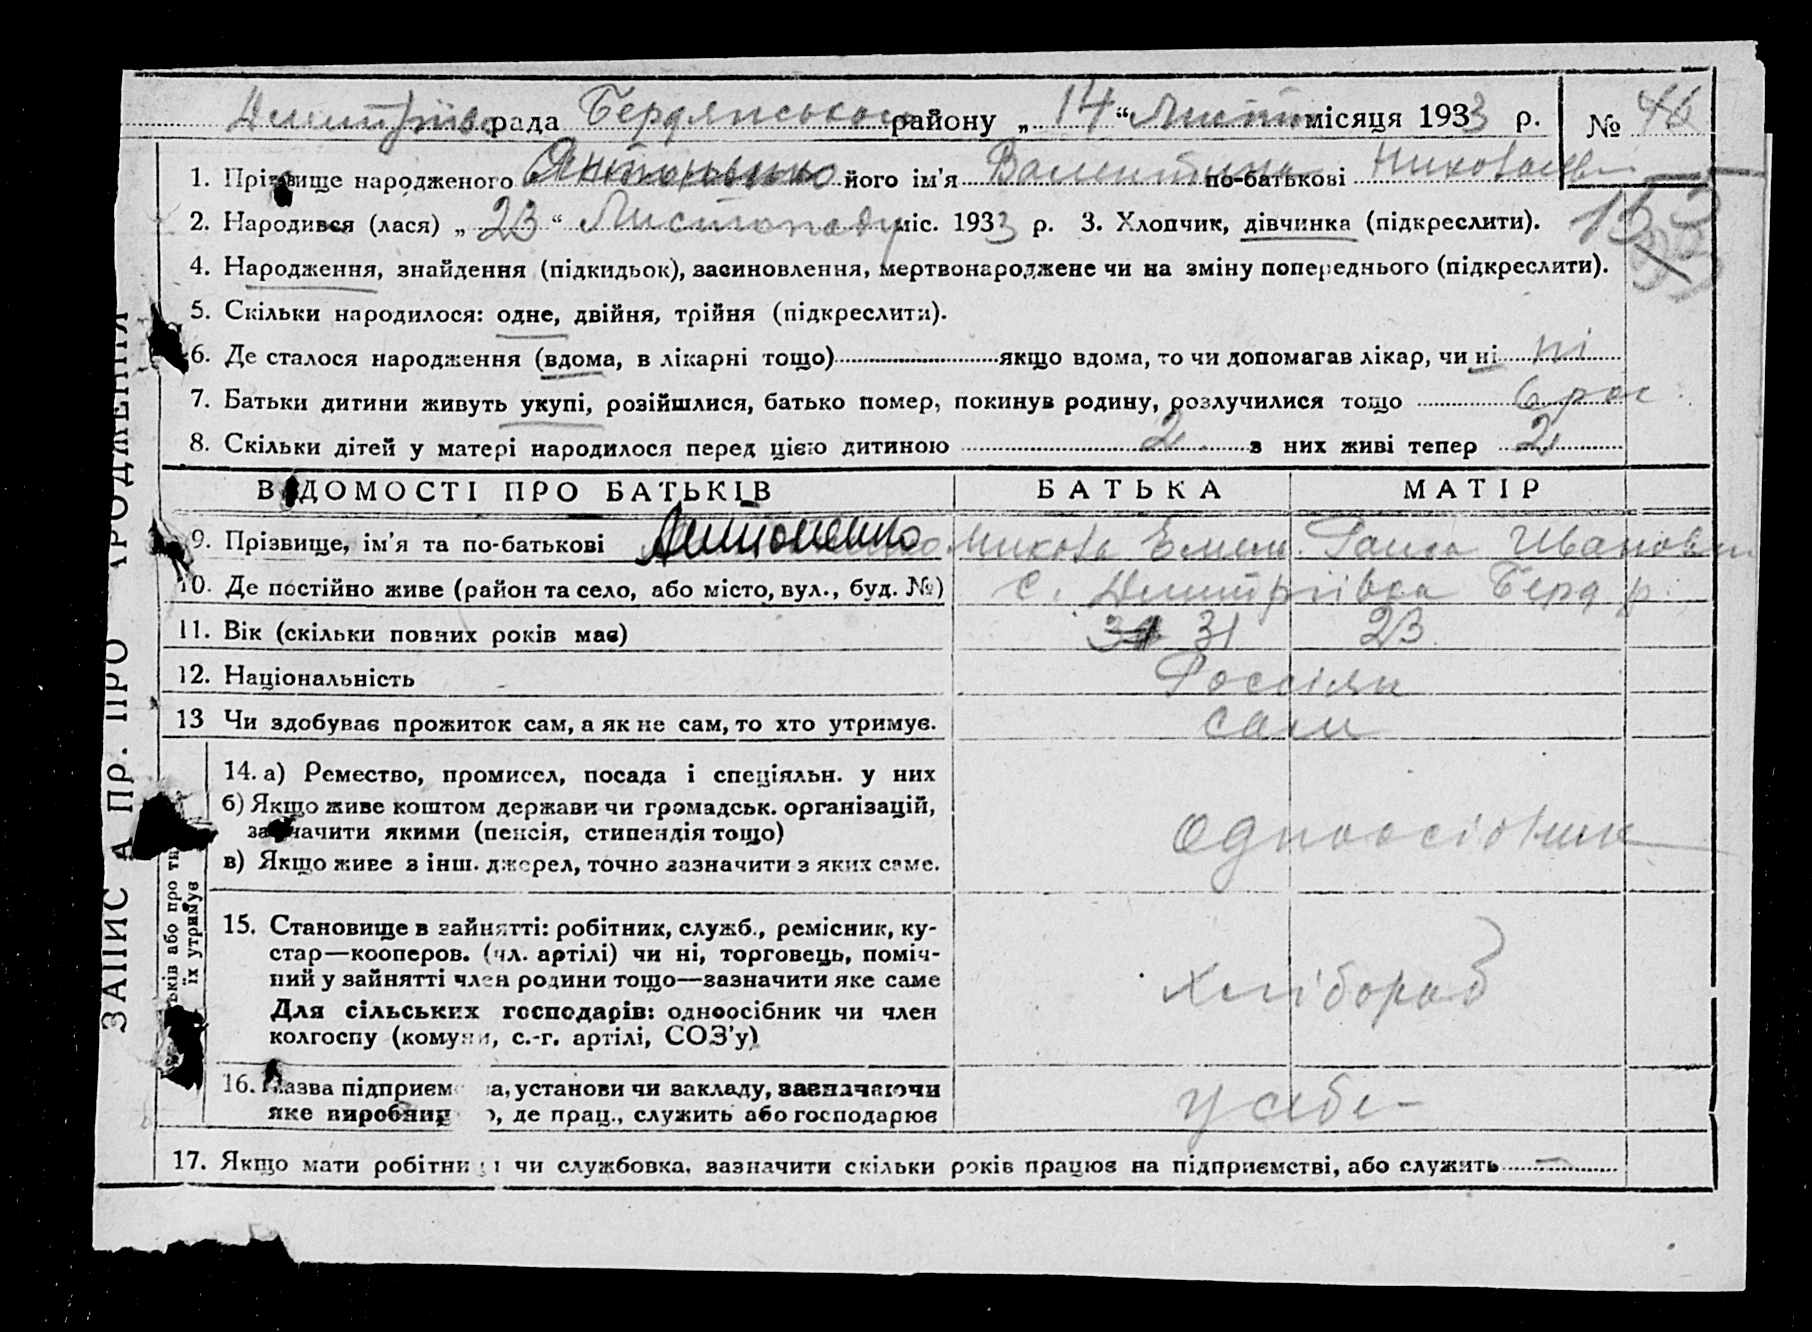 Дмитрівс рада Бердянського району „ 14 “ Листоп місяця 1933 р. № 46
1. Прізвище народженого Антоненко його ім'я Валентина по-батькові Николаев
2. Народився (лася) „ 23 “ Листопаду міс. 1933 р. 3. Хлопчик, дівчинка (підкреслити).
4. Народження, знайдення (підкидьок), засиновлення, мертвонароджене чи на зміну попереднього (підкреслити).
5. Скільки народилося: одне, двійня, трійня (підкреслити).
6. Де сталося народження (вдома, в лікарні тощо) якщо вдома, то чи допомагав лікар, чи ні ні
7. Батьки дитини живуть укупі, розійшлися, батько помер, покинув родину, розлучилися тощо 6 рос
8. Скільки дітей у матері народилося перед цією дитиною 2 з них живі тепер 2
ВІДОМОСТІ ПРО БАТЬКІВ БАТЬКА МАТІР
9. Прізвище, ім'я та по-батькові Антоненко Микола Емел. Раиса Ивановн
10. Де постійно живе (район та село, або місто, вул., буд. №) с. Дмитріівка Берд р.
11. Вік (скільки повних років має) 31 23
12. Національність Россіян
13 Чи здобуває прожиток сам, а як не сам, то хто утримує. сами
14. а) Ремество, промисел, посада і спеціяльн. у них
б) Якщо живе коштом держави чи громадськ. організацій,
зазначити якими (пенсія, стипендія тощо) одноосібник
в) Якщо живе з інш. джерел, точно зазначити з яких саме.
15. Становище в зайнятті: робітник, служб., ремісник, ку-
стар—кооперов. (чл. артілі) чи ні, торговець, поміч-
ний у зайнятті член родини тощо—зазначити яке саме хлібороб
Для сільських господарів: одноосібник чи член
колгоспу (комуни, с.-г. артілі, СОЗ'у)
16. Назва підприємства, установи чи закладу, зазначаючи
яке виробниц о, де прац., служить або господарює у себе
17. Якщо мати робітниця чи службовка, зазначити скільки років працює на підприємстві, або служить —
ЗАПИС А ПР. ПРО НАРОДЖЕННЯ
тьків або про ти
їх утримує